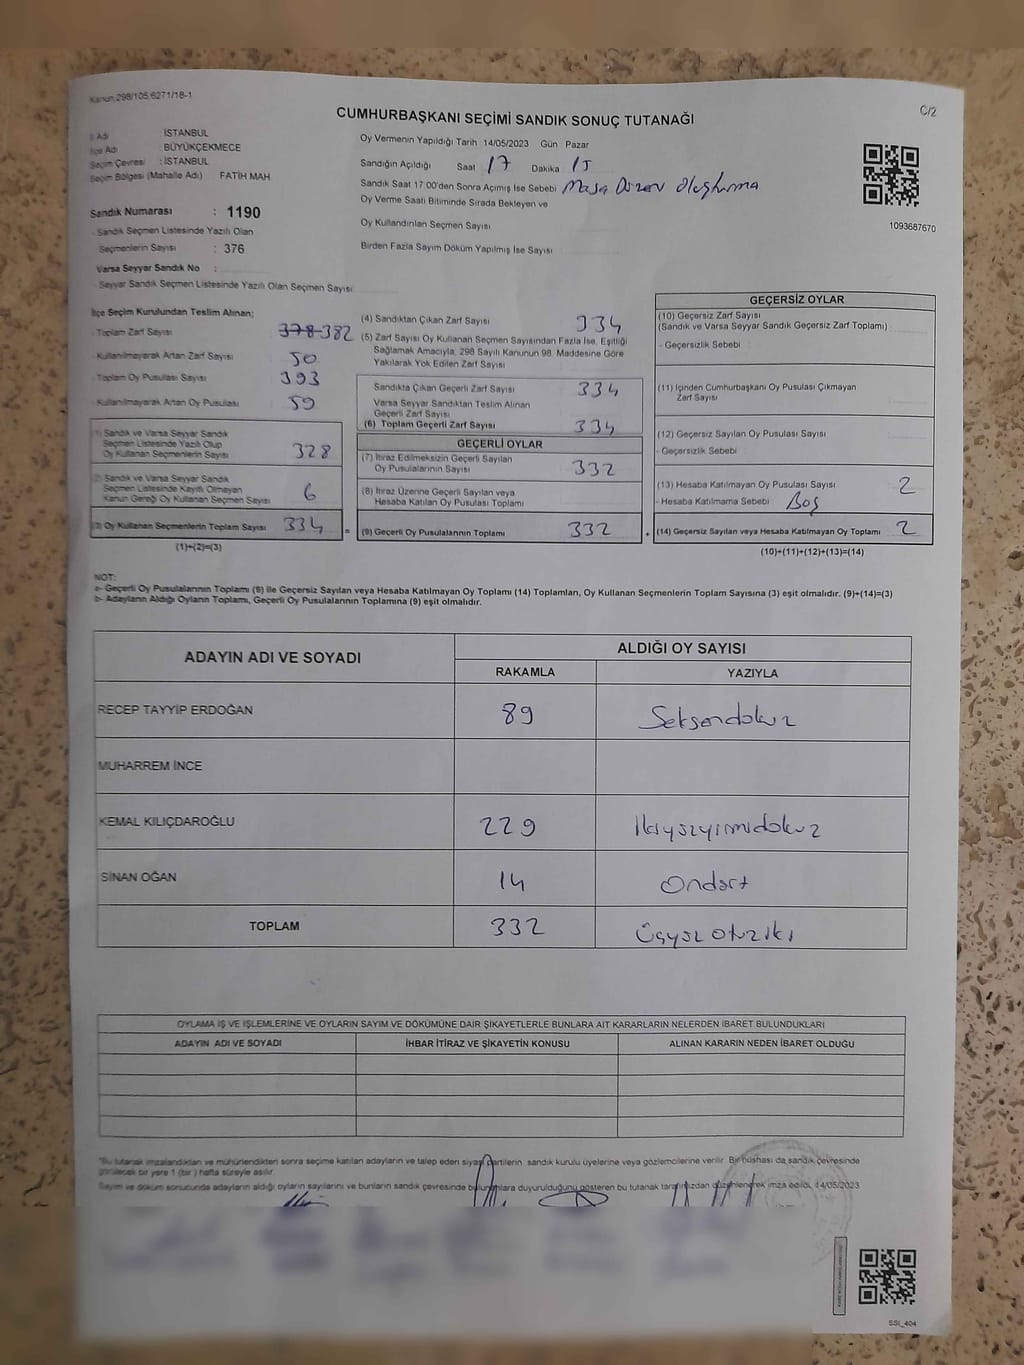 Kanun 298/105,6271/18-1
C/2
CUMHURBAŞKANI SEÇİMİ SANDIK SONUÇ TUTANAĞI
İl Adı : İSTANBUL
İlçe Adı : BÜYÜKÇEKMECE
Seçim Çevresi : İSTANBUL
Seçim Bölgesi (Mahalle Adı) FATİH MAH.
Sandık Numarası : 1190
- Sandık Seçmen Listesinde Yazılı Olan
Seçmenlerin Sayısı : 376
Varsa Seyyar Sandık No :
- Seyyar Sandık Seçmen Listesinde Yazılı Olan Seçmen Sayısı
Oy Vermenin Yapıldığı Tarih 14/05/2023 Gün : Pazar
Sandığın Açıldığı Saat 17 Dakika 15
Sandık Saat 17:00'den Sonra Açımış İse Sebebi Masa Düzen oluşturma
Oy Verme Saati Bitiminde Sırada Bekleyen ve
Oy Kullandırılan Seçmen Sayısı
Birden Fazla Sayım Döküm Yapılmış İse Sayısı
1093687670
İlçe Seçim Kurulundan Teslim Alınan;
- Toplam Zarf Sayısı 378 382
- Kullanılmayarak Artan Zarf Sayısı 50
- Toplam Oy Pusulası Sayısı 393
- Kullanılmayarak Artan Oy Pusulası 59
(1) Sandık ve Varsa Seyyar Sandık
Seçmen Listesinde Yazılı Olup
Oy Kullanan Seçmenlerin Sayısı 328
(2) Sandık ve Varsa Seyyar Sandık
Seçmen Listesinde Kayıtlı Olmayan
Kanun Gereği Oy Kullanan Seçmen Sayısı 6
(3) Oy Kullanan Seçmenlerin Toplam Sayısı 334 =
(1)+(2)=(3)
(4) Sandıktan Çıkan Zarf Sayısı 334
(5) Zarf Sayısı Oy Kullanan Seçmen Sayısından Fazla İse, Eşitliği
Sağlamak Amacıyla, 298 Sayılı Kanunun 98. Maddesine Göre
Yakılarak Yok Edilen Zarf Sayısı
Sandıkta Çıkan Geçerli Zarf Sayısı 334
Varsa Seyyar Sandıktan Teslim Alınan
Geçerli Zarf Sayısı
(6) Toplam Geçerli Zarf Sayısı 334
GEÇERLİ OYLAR
(7) İtiraz Edilmeksizin Geçerli Sayılan
Oy Pusulalarının Sayısı 332
(8) İtiraz Üzerine Geçerli Sayılan veya
Hesaba Katılan Oy Pusulası Toplamı
(9) Geçerli Oy Pusulalarının Toplamı 332 +
GEÇERSİZ OYLAR
(10) Geçersiz Zarf Sayısı
(Sandık ve Varsa Seyyar Sandık Geçersiz Zarf Toplamı)
- Geçersizlik Sebebi
(11) İçinden Cumhurbaşkanı Oy Pusulası Çıkmayan
Zarf Sayısı
(12) Geçersiz Sayılan Oy Pusulası Sayısı
- Geçersizlik Sebebi
(13) Hesaba Katılmayan Oy Pusulası Sayısı 2
- Hesaba Katılmama Sebebi Boş
(14) Geçersiz Sayılan veya Hesaba Katılmayan Oy Toplamı 2
(10)+(11)+(12)+(13)=(14)
NOT:
a- Geçerli Oy Pusulalarının Toplamı (9) ile Geçersiz Sayılan veya Hesaba Katılmayan Oy Toplamı (14) Toplamları, Oy Kullanan Seçmenlerin Toplam Sayısına (3) eşit olmalıdır. (9)+(14)=(3)
b- Adayların Aldığı Oyların Toplamı, Geçerli Oy Pusulalarının Toplamına (9) eşit olmalıdır.
ADAYIN ADI VE SOYADI ALDIĞI OY SAYISI
RAKAMLA YAZIYLA
RECEP TAYYİP ERDOĞAN 89 Seksendokuz
MUHARREM İNCE
KEMAL KILIÇDAROĞLU 229 İkiyüzyirmidokuz
SİNAN OĞAN 14 Ondört
TOPLAM 332 Üçyüz otuziki
OYLAMA İŞ VE İŞLEMLERİNE VE OYLARIN SAYIM VE DÖKÜMÜNE DAİR ŞİKAYETLERLE BUNLARA AİT KARARLARIN NELERDEN İBARET BULUNDUKLARI
ADAYIN ADI VE SOYADI İHBAR İTİRAZ VE ŞİKAYETİN KONUSU ALINAN KARARIN NEDEN İBARET OLDUĞU
*Bu tutanak imzalandıktan ve mühürlendikten sonra seçime katılan adayların ve talep eden siyasi partilerin sandık kurulu üyelerine veya gözlemcilerine verilir. Bir nüshası da sandık çevresinde
görülecek bir yere 1 (bir) hafta süreyle asılır.
Sayım ve döküm sonucunda adayların aldığı oyların sayılarını ve bunların sandık çevresinde bulunanlara duyurulduğunu gösteren bu tutanak tarafımızdan düzenlenerek imza edildi. 14/05/2023
SSI_404